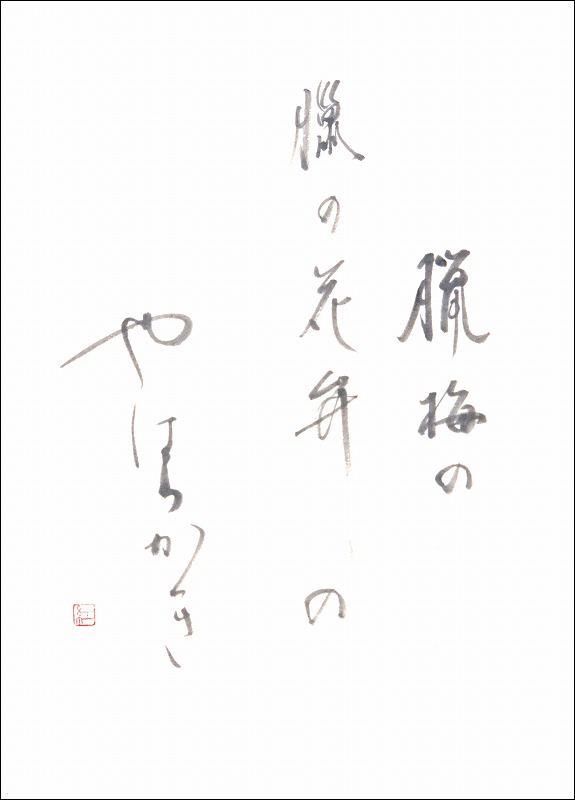 臘梅の
臘の花弁の
やはらかき
紅